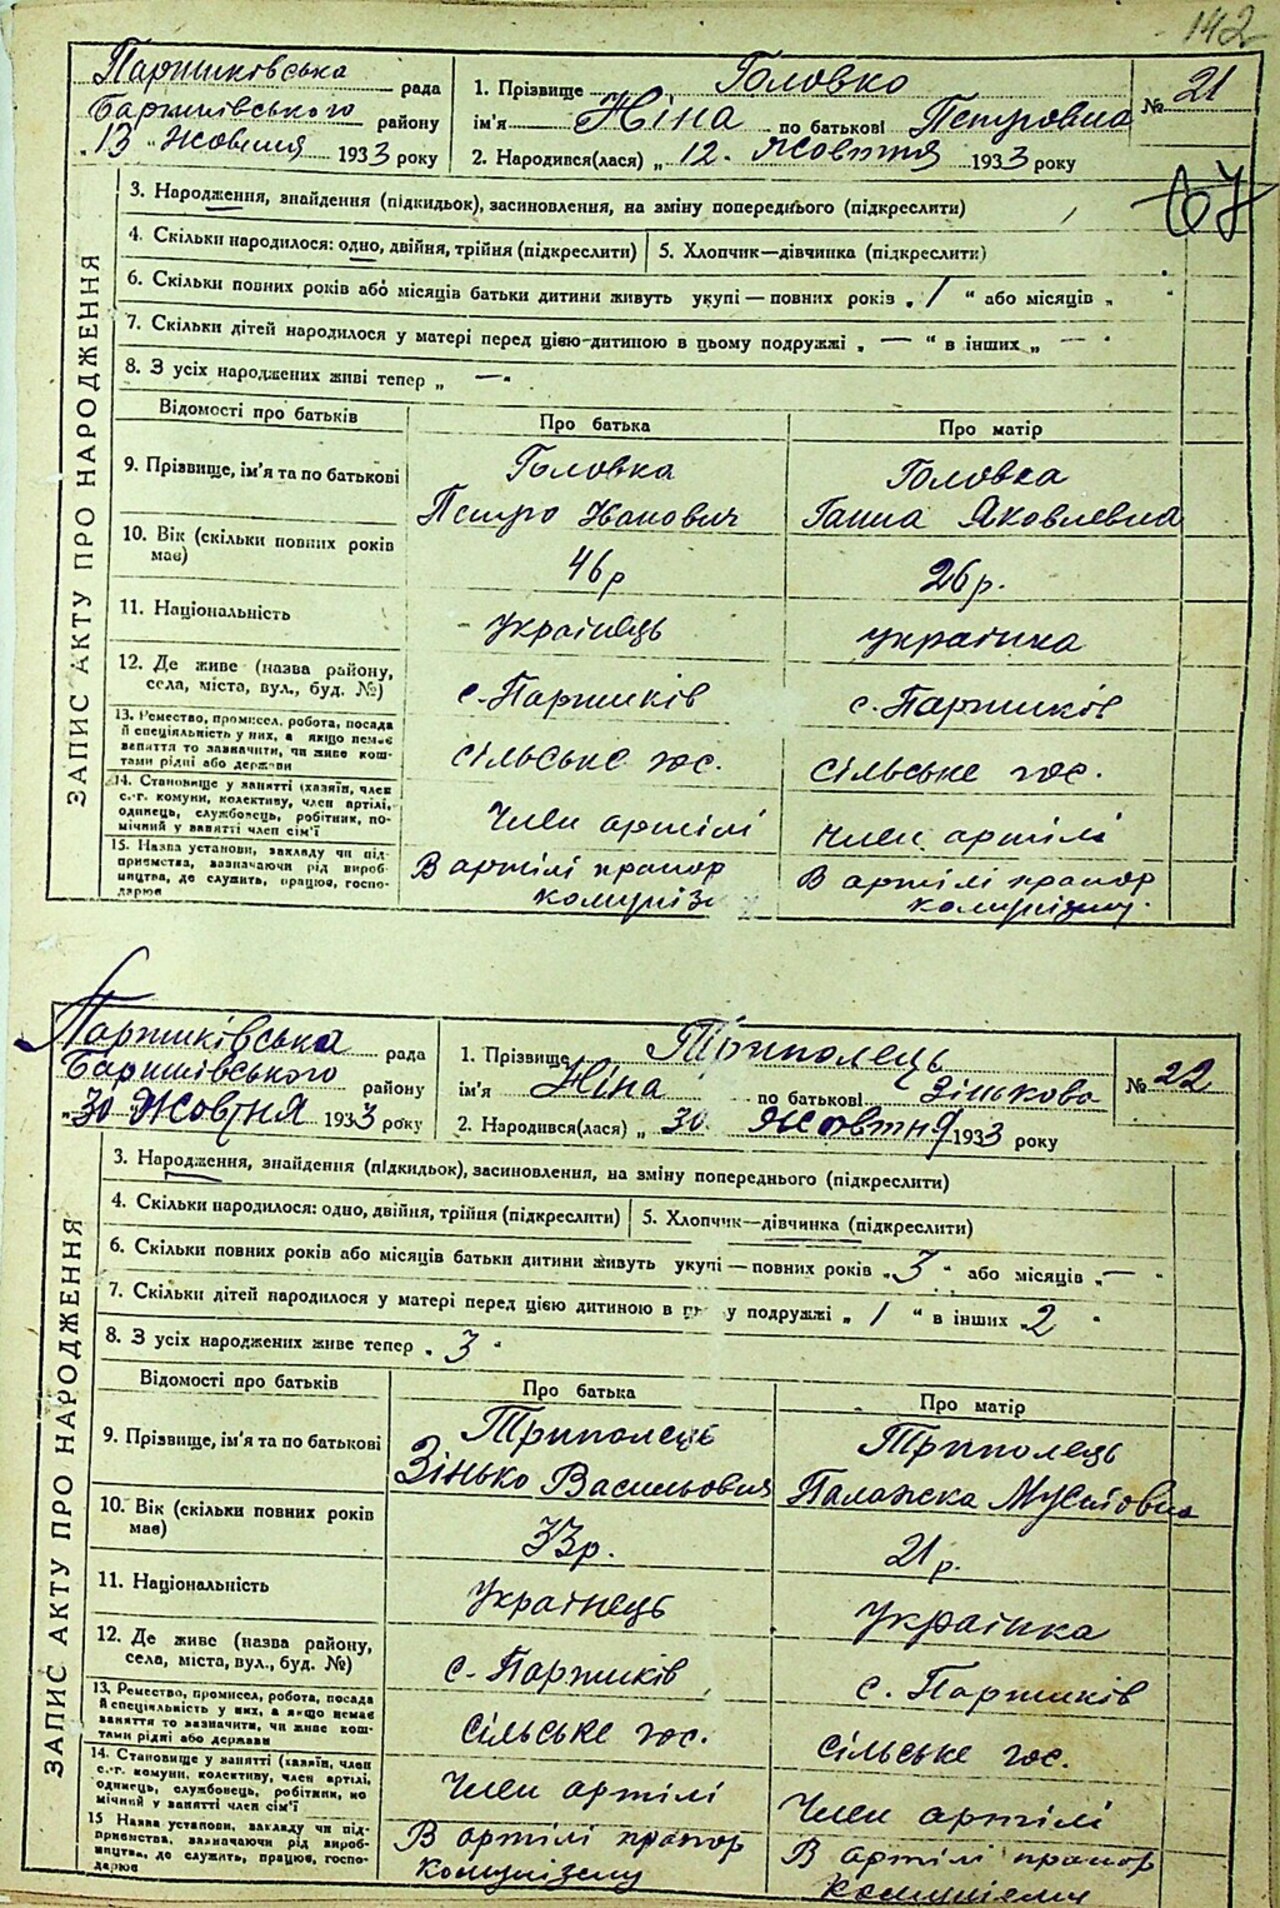 142
Паришківська рада
Баришівського району
„13 „ Жовтня 1933 року
1. Прізвище Головко
ім'я Ніна по батькові Петровна
2. Народився(лася) „ 12. Жовтня 1933 року
№ 21
67
ЗАПИС АКТУ ПРО НАРОДЖЕННЯ
3. Народження, знайдення (підкидьок), засиновлення, на зміну попереднього (підкреслити)
4. Скільки народилося: одно, двійня, трійня (підкреслити) 5. Хлопчик—дівчинка (підкреслити)
6. Скільки повних років або місяців батьки дитини живуть укупі — повних років „ 1 “ або місяців „ “
7. Скільки дітей народилося у матері перед цією дитиною в цьому подружжі „ — “ в інших „ — “
8. З усіх народжених живі тепер „ — “
Відомості про батьків Про батька Про матір
9. Прізвище, ім'я та по батькові
Головка Головка
Петро Іванович Ганна Яковлевна
10. Вік (скільки повних років має) 46 р 26 р.
11. Національність українець українка
12. Де живе (назва району, с. Паришків с. Паришків
села, міста, вул., буд. №)
13. Ремество, промисел, робота, посада
й спеціяльність у них, а якщо немає
заняття то зазначити, чи живе кош-
тами рідні або держави
сільське гос. сільське гос.
14. Становище у занятті (хазяїн, член
с.-г. комуни, колективу, член артілі,
одинець, службовець, робітник, по-
мічний у занятті член сім'ї
член артілі член артілі
15. Назва установи, закладу чи під-
приємства, зазначаючи рід вироб-
ництва, де служить, працює, госпо-
дарює
В артілі прапор В артілі прапор
комуніз комунізму.
Паришківська рада
Баришівського району
„30 Жовтня 1933 року
1. Прізвище Триполець
ім'я Ніна по батькові Зінькова
2. Народився(лася) „ 30. Жовтня 1933 року
№ 22
ЗАПИС АКТУ ПРО НАРОДЖЕННЯ
3. Народження, знайдення (підкидьок), засиновлення, на зміну попереднього (підкреслити)
4. Скільки народилося: одно, двійня, трійня (підкреслити) 5. Хлопчик—дівчинка (підкреслити)
6. Скільки повних років або місяців батьки дитини живуть укупі — повних років „ 3 “ або місяців „ — “
7. Скільки дітей народилося у матері перед цією дитиною в у подружжі „ 1 “ в інших „ 2 “
8. З усіх народжених живе тепер „ 3 “
Відомості про батьків Про батька Про матір
9. Прізвище, ім'я та по батькові
Триполець Триполець
Зінько Васильович Палажка Мусіївна
10. Вік (скільки повних років має) 33 р. 21 р.
11. Національність Українець Українка
12. Де живе (назва району, с. Паришків с. Паришків
села, міста, вул., буд. №)
13. Ремество, промисел, робота, посада
й спеціяльність у них, а якщо немає
заняття то зазначити, чи живе кош-
тами рідні або держави
сільське гос. сільське гос.
14. Становище у занятті (хазяїн, член
с.-г. комуни, колективу, член артілі,
одинець, службовець, робітник, по-
мічний у занятті член сім'ї
Член артілі Член артілі
15 Назва установи, закладу чи під-
приємства, зазначаючи рід вироб-
ництва, де служить, працює, госпо-
дарює
В артілі прапор В артілі прапор
комунізму комунізма